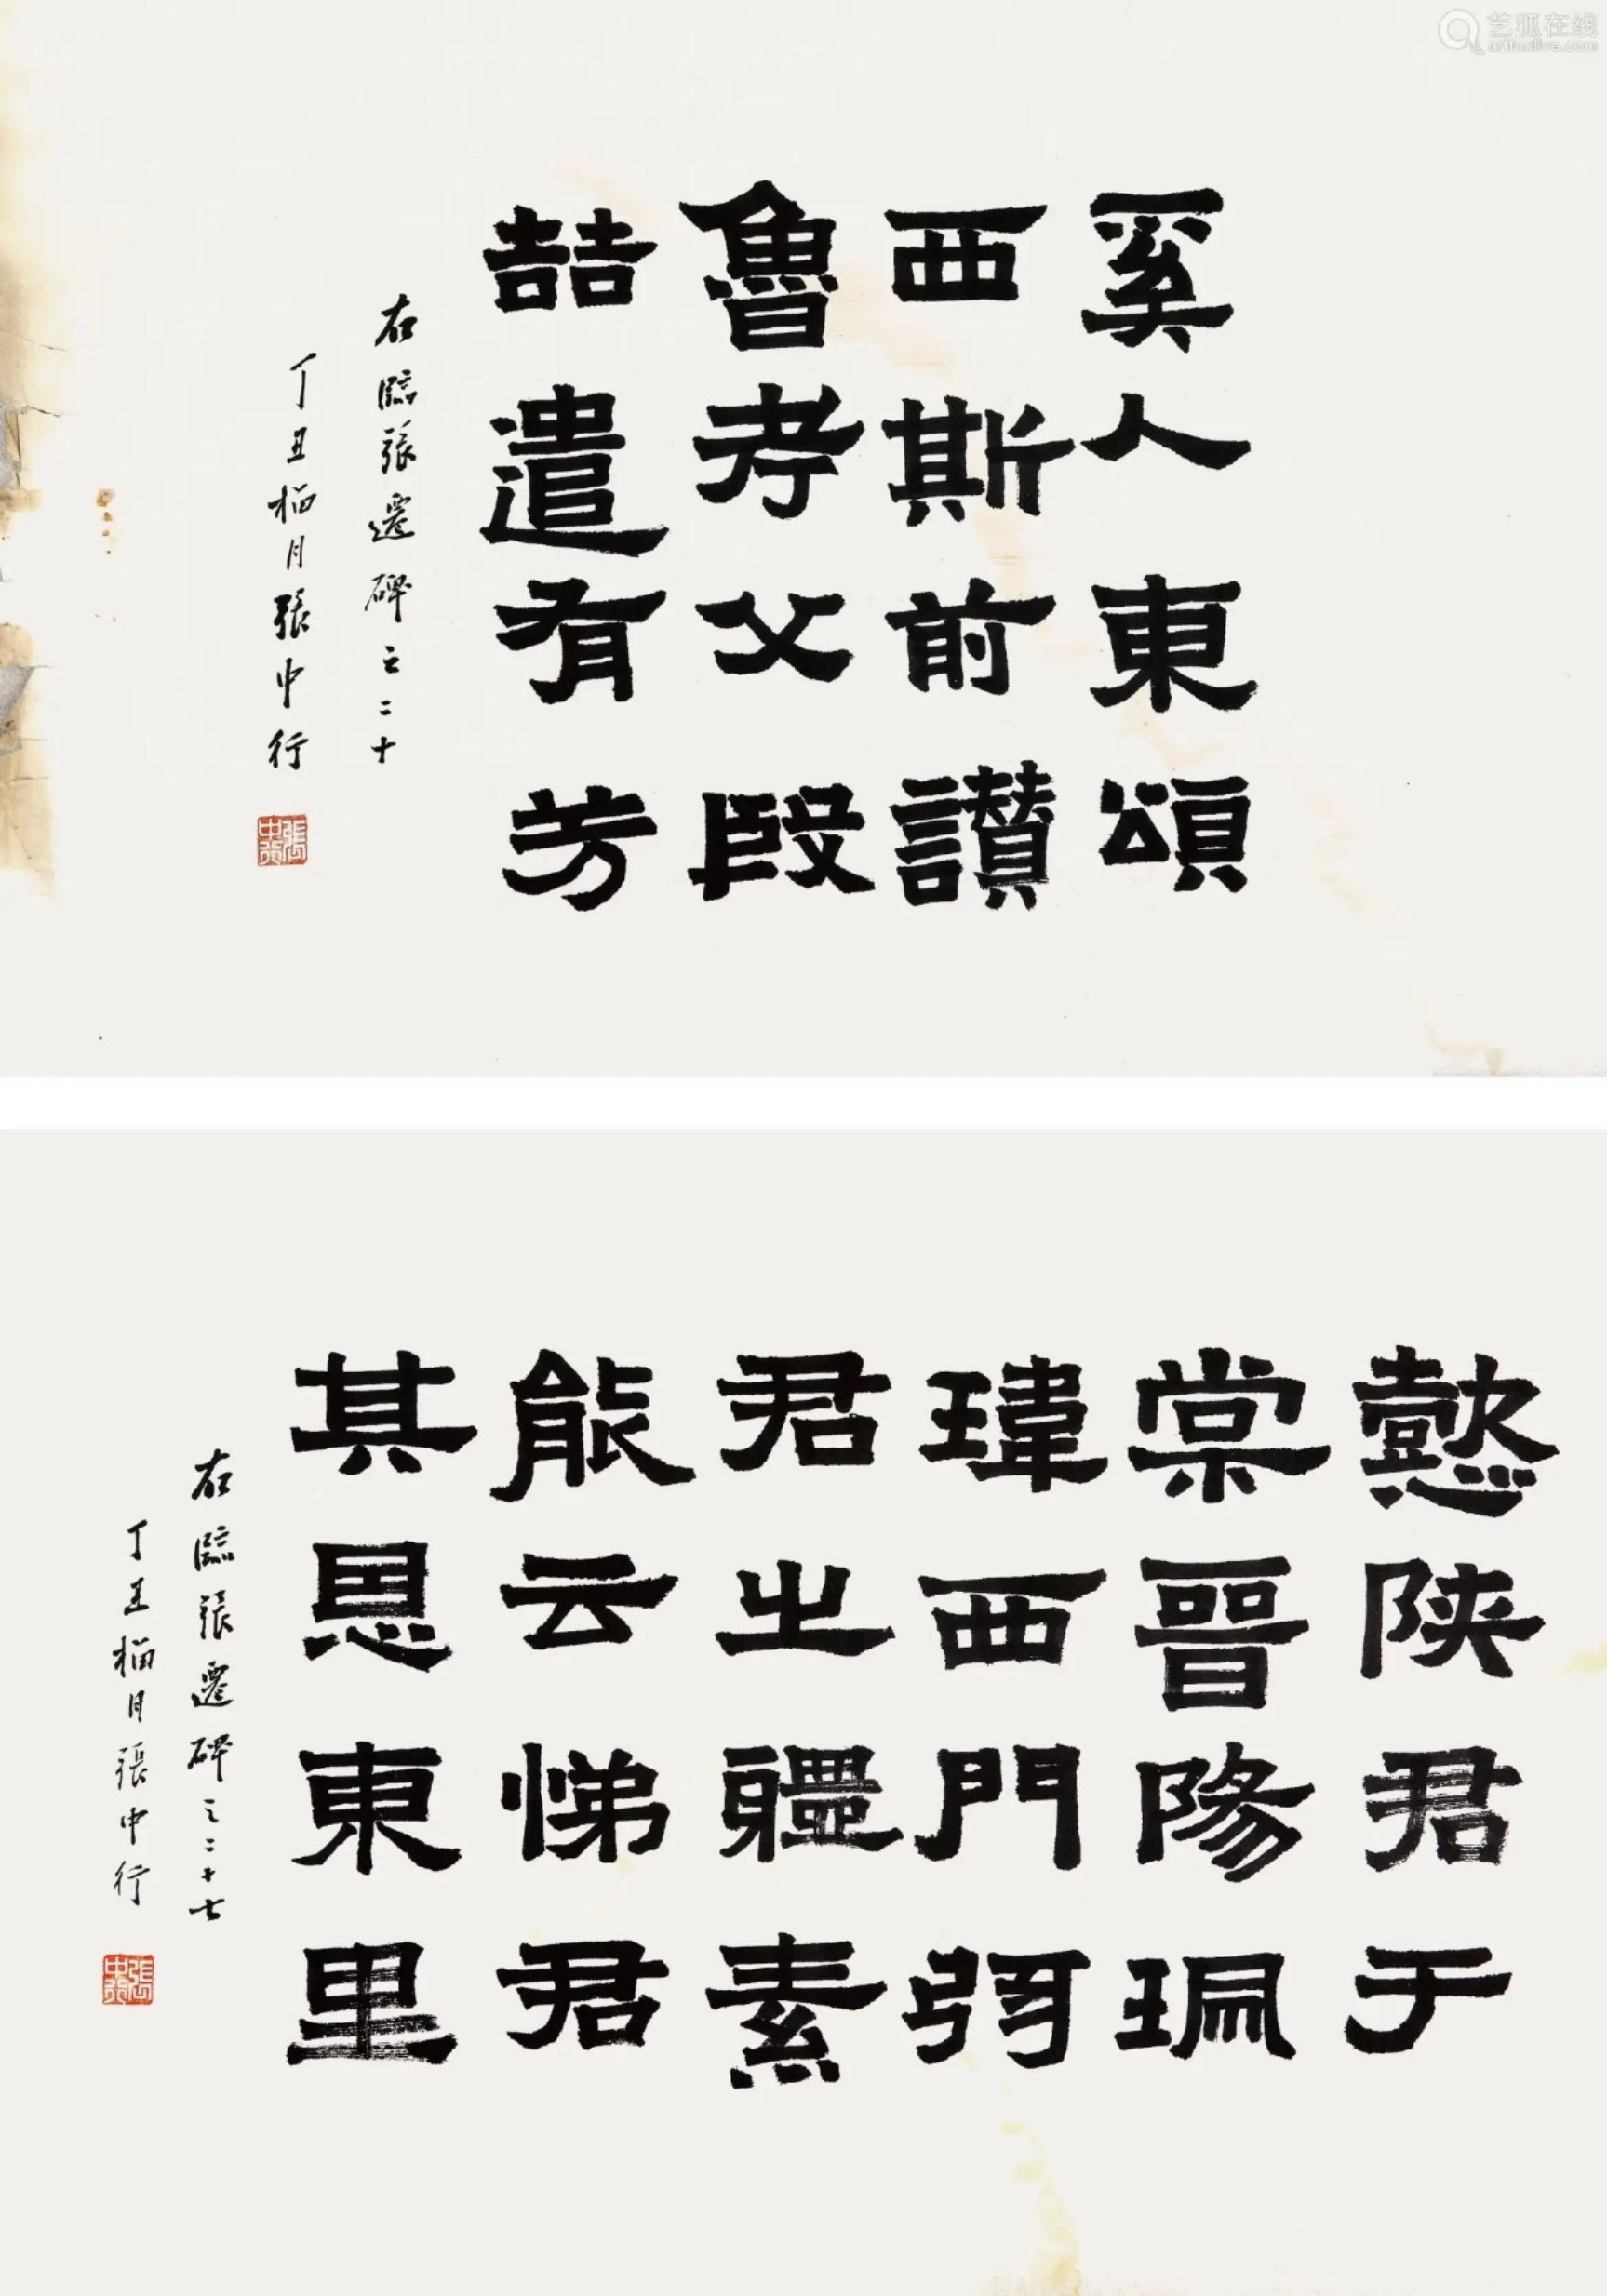 艺狐在线
artfoxlive.com
奚人東頌
西斯前讚
魯考父殷
喆遣有芳
右臨張遷碑之二十
丁丑梅月張中行
張中行
懿陝君于
棠晉陽珮
瑋西門
君之體素
能云悌君
其恩東里
右臨張遷碑之二十七
丁丑梅月張中行
張中行